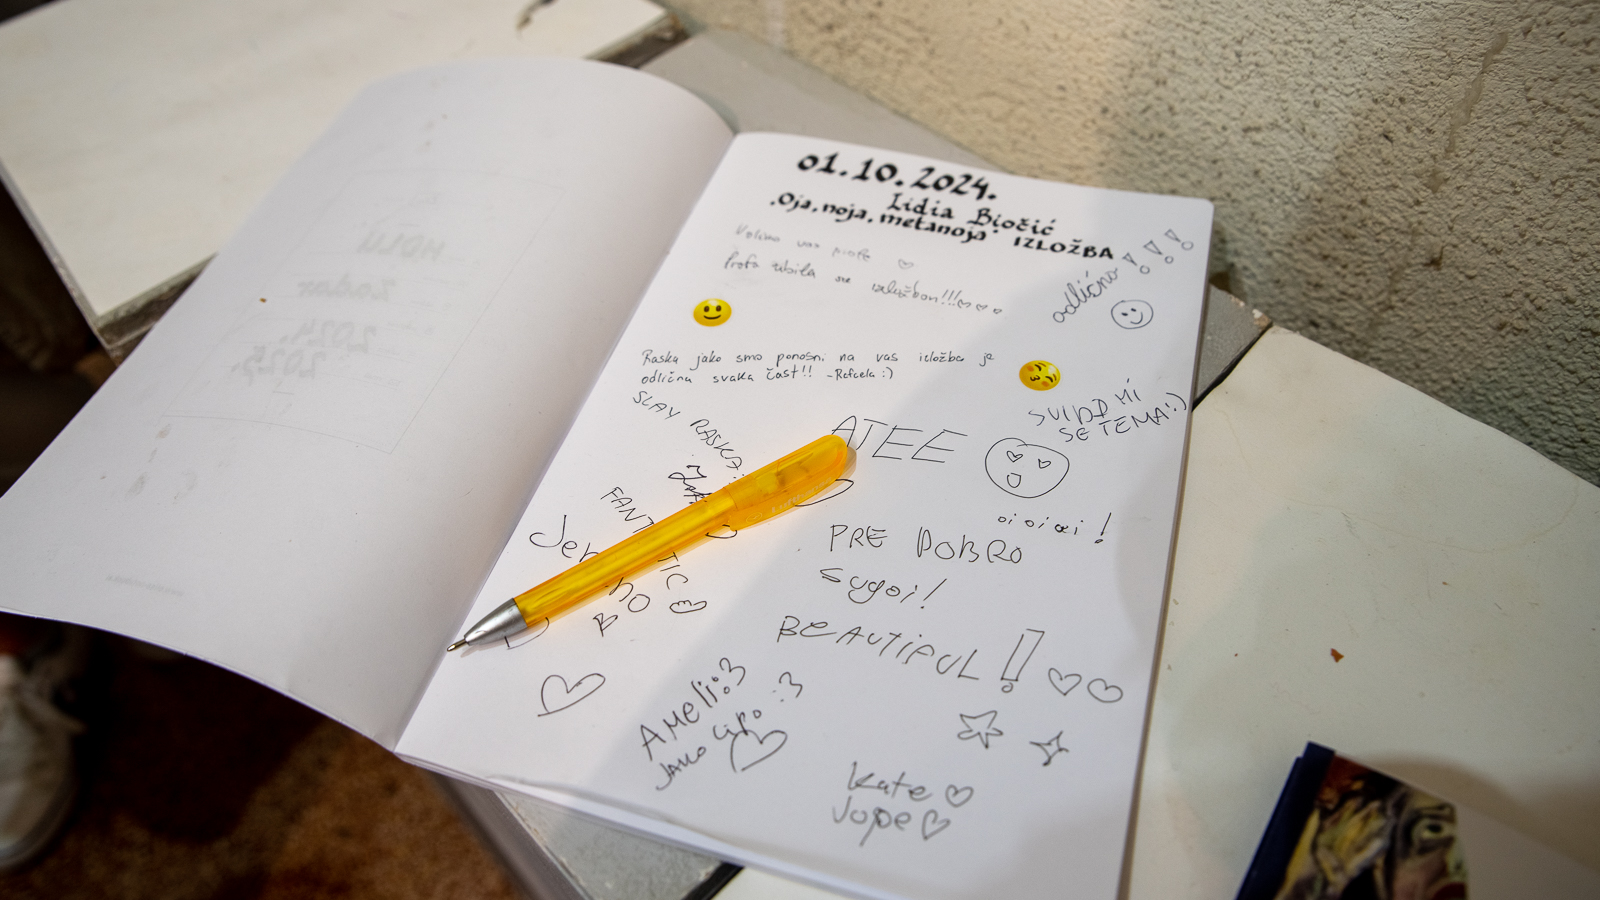 01.10.2024.
Lidia Biočić
"Oja, noja, metanoja" IZLOŽBA
Volimo vas profe
Profa ubila se izložbom!!!
odlično!!!
Raska jako smo ponosni na vas izložba je
odlična svaka čast!! -Rafaela:)
SVIĐA MI
SE TEMA!:)
SLAY RASKA
AJEE
oioioi!
FANT TIC
PRE DOBRO
sugoi!
BEAUTIFUL!
AMELI:3
JAKO LIPO :3
Kate
Jope
HDLU
Zadar
2024.
2025.